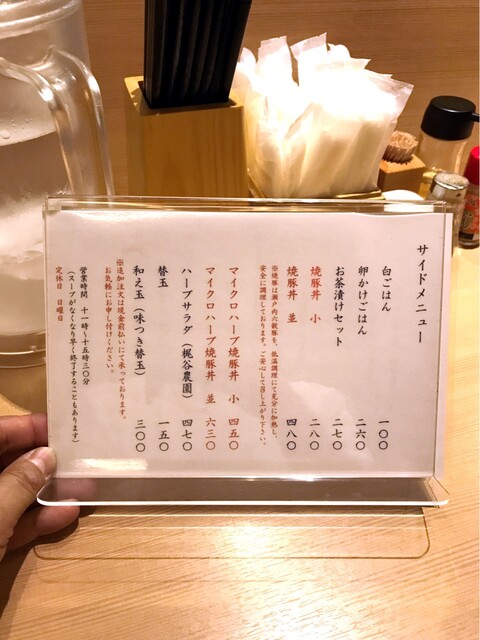 サイドメニュー
白ごはん 一〇〇
卵かけごはん 二六〇
お茶漬けセット 二七〇
焼豚丼 小 二八〇
焼豚丼 並 四八〇
※焼豚は瀬戸内六穀豚を、低温調理にて充分に加熱し、
安全に調理しております。ご安心して召し上がり下さい。
マイクロハーブ焼豚丼 小 四五〇
マイクロハーブ焼豚丼 並 六三〇
ハーブサラダ(梶谷農園) 四七〇
替玉 一五〇
和え玉(味つき替玉) 三〇〇
※追加注文は現金前払いにて承っております。
お気軽にお申し付けください。
営業時間 十一時〜十五時三〇分
(スープがなくなり早く終了することもあります)
定休日 日曜日